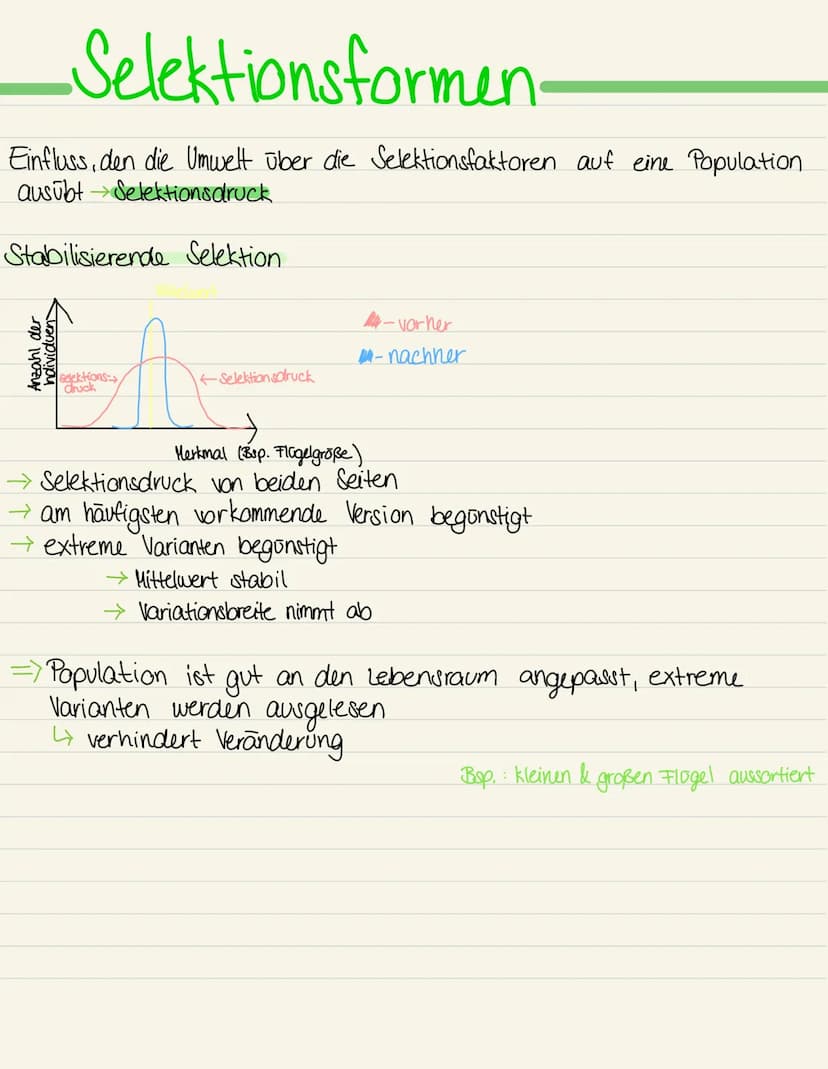 Selektionsformen
Einfluss, den die Umwelt über die Selektionsfaktoren auf eine Population
ausübt → Selektionsdruck
Stabilisierende Selektion
Anzahl der
Individuen
Selektions-→
druck
← Selektionsdruck
- vorher
- nachher
Merkmal (Bsp. Flügelgröße)
→ Selektionsdruck von beiden Seiten
→ am häufigsten vorkommende Version begünstigt
→ extreme Varianten begünstigt
→ Mittelwert stabil
→ Variationsbreite nimmt ab
=> Population ist gut an den Lebensraum angepasst, extreme
Varianten werden ausgelesen
↳ verhindert Veränderung
Bsp.: kleinen & großen Flügel aussortiert